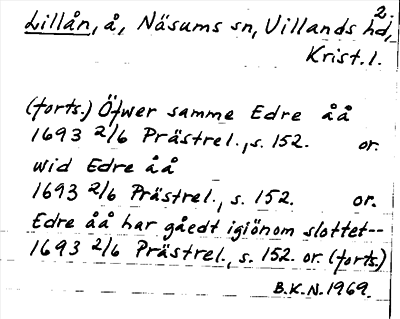 2.
Lillån, å, Näsums sn, Villands hd,
Krist. l.
(forts.) Öfwer samme Edre åå
1693 2/6 Prästrel., s. 152. or.
wid Edre åå
1693 2/6 Prästrel., s. 152. or.
Edre åå har gåedt igiönom slottet--
1693 2/6 Prästrel., s. 152. or. (forts.)
B.K.N. 1969.